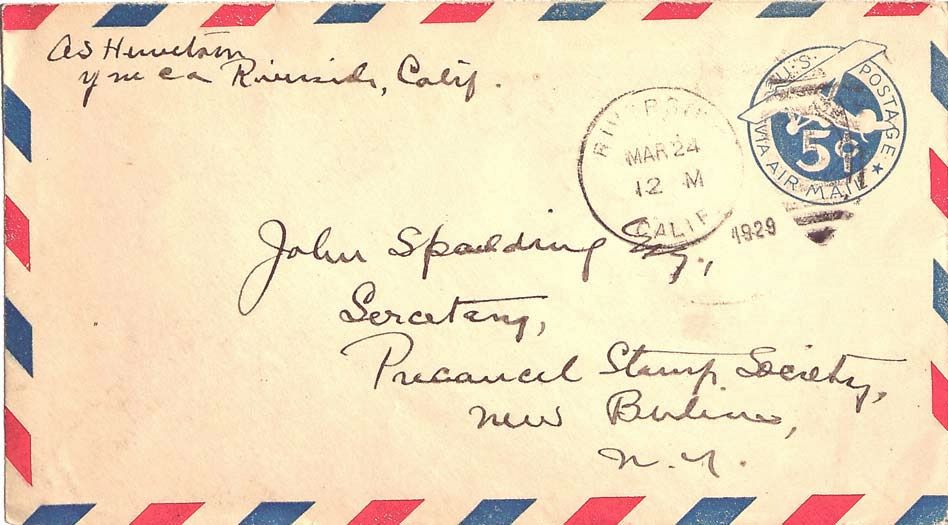 AS
YMCA Riverside, Calif.
U.S. POSTAGE
VIA AIR MAIL
5¢
RIVERSIDE
MAR 24
12 M
CALIF
1929
John Spaulding Esq.,
Secretary,
Precancel Stamp Society,
New Berlin,
N.Y.